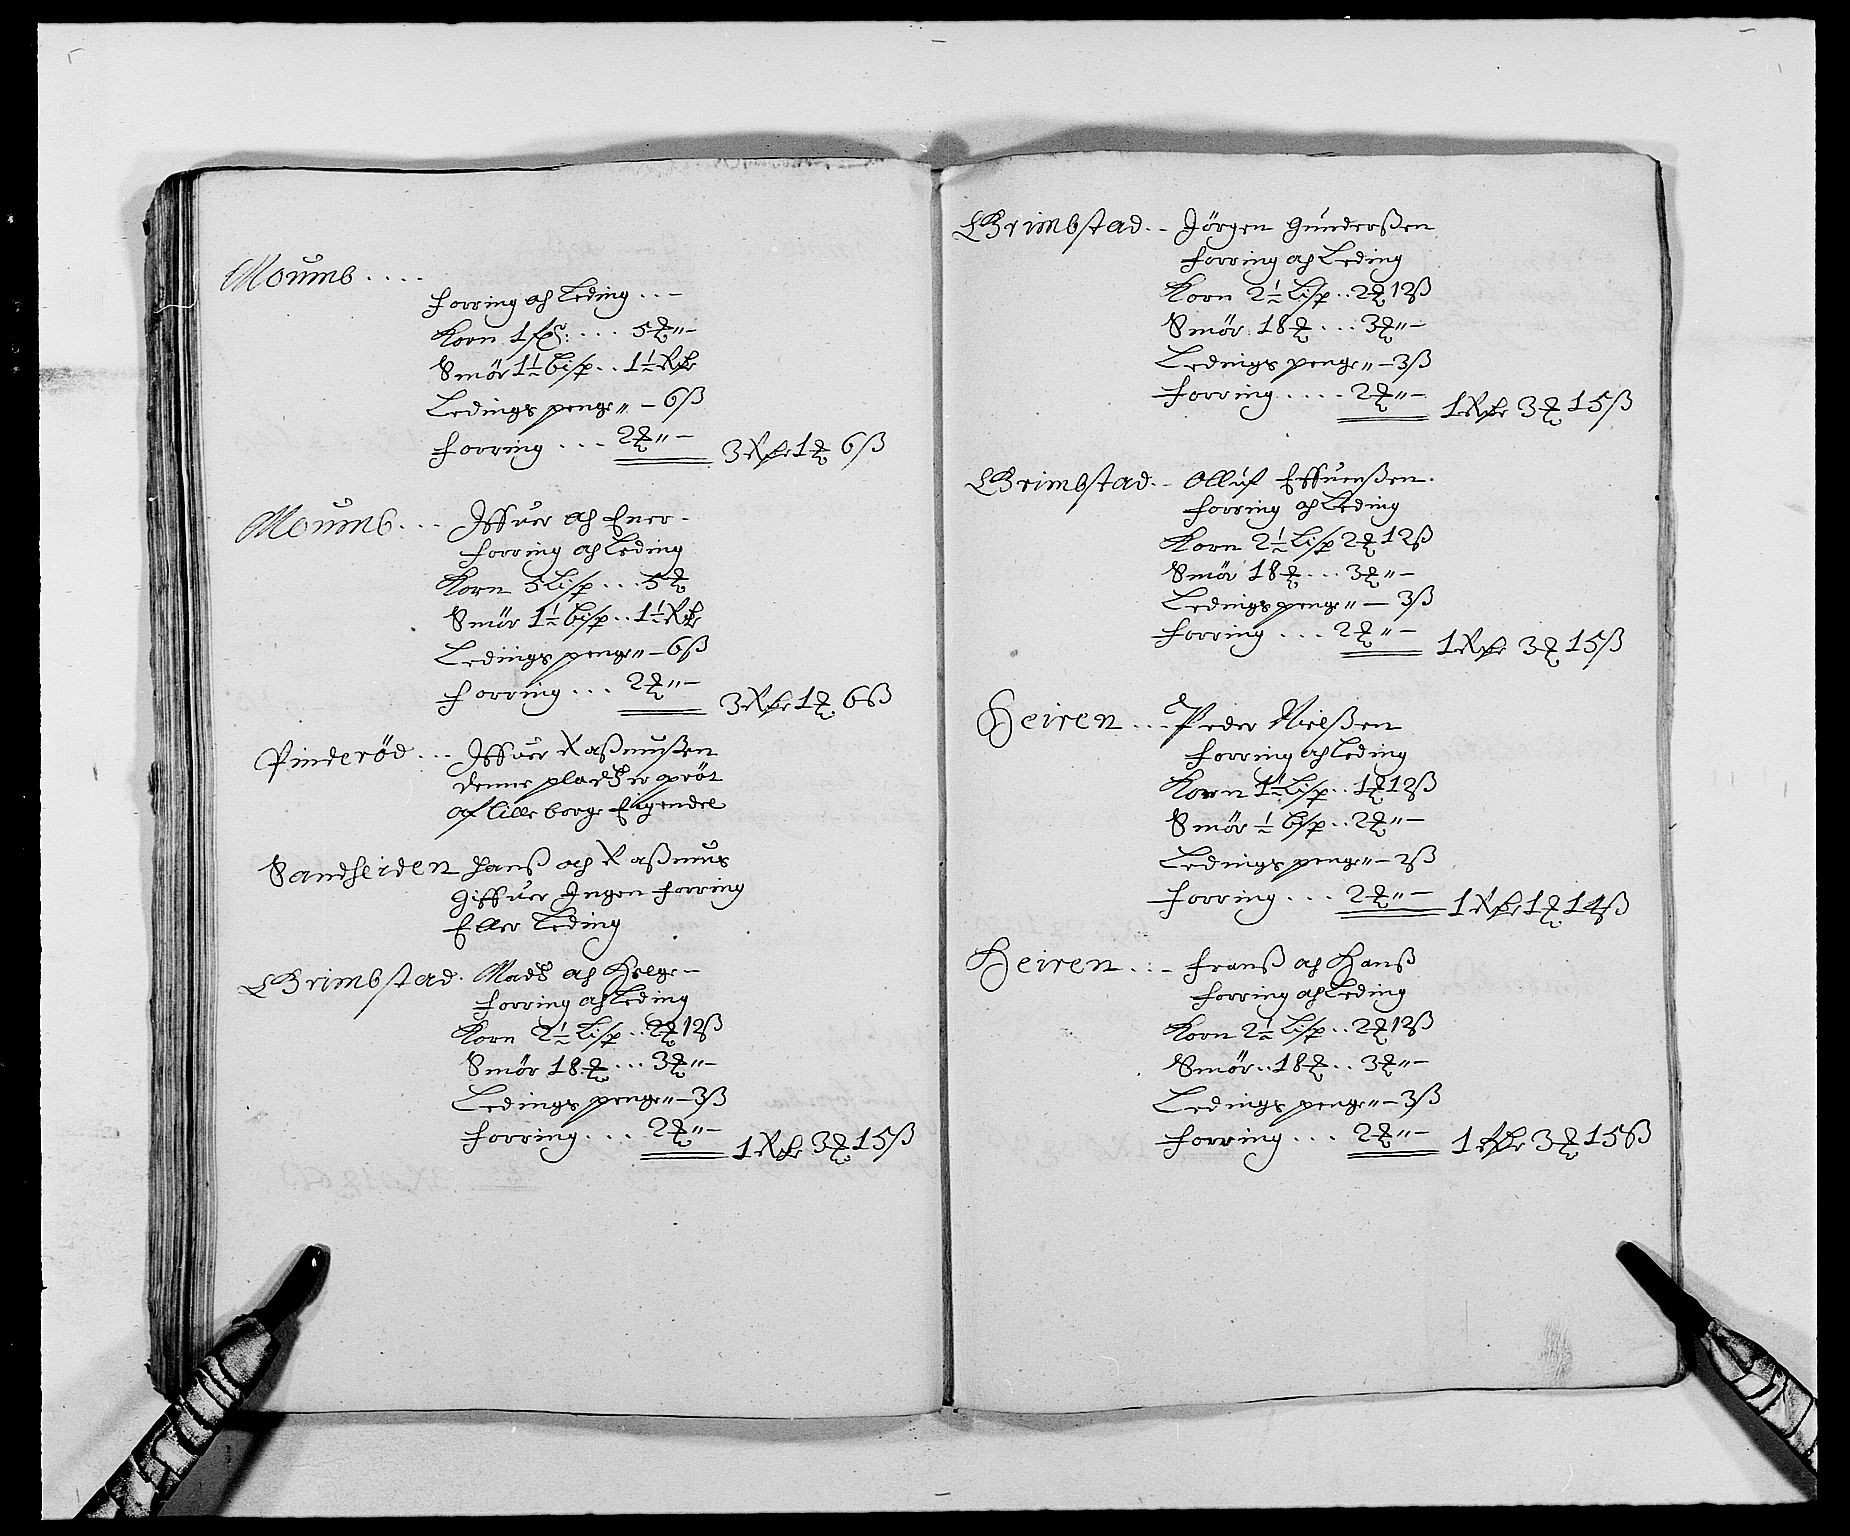 Moumb . . . .
Forring och Leding . . —
Korn 1 sk℔: . . . 5 ℔ „ —
Smör 1½ Lisp . . 1½ Rdr
Ledings penge „ — 6 ß
Forring . . . 2 ℔ „ — 3 Rdr 1 ℔ 6 ß
Moumb . . . Iffuer och Ener -
Forring och Leding
Korn 5 Lisp . . . 5 ℔
Smör 1½ Lisp . . 1½ Rdr
Ledings penge „ — 6 ß
Forring . . . 2 ℔ „ — 3 Rdr 1 ℔ 6 ß
Pinderöd . . . Iffuer Raßmußen
denne pladtz er
af Lilleborge Eigendel
Sandheiden Hanß och Raßmus
Giffuer Ingen Forring
Eller Leding
Grimbstad . Madtz och Helge —
Forring och Leding
Korn 2½ Lisp . . 2 ℔ 12 ß
Smör 18 ℔ . . . 3 ℔ „ —
Ledings penge „ — 3 ß
Forring . . . 2 ℔ „ — 1 Rdr 3 ℔ 15 ß
Grimbstad . . — Jörgen Gunderßen
Forring och Leding
Korn 2½ Lisp . . 2 ℔ 12 ß
Smör 18 ℔ . . . 3 ℔ „ —
Ledings penge „ — 3 ß
Forring . . . . . 2 ℔ „ — 1 Rdr 3 ℔ 15 ß
Grimbstad . . — Olluf Effuenßen .
Forring och Leding
Korn 2½ Lisp 2 ℔ 12 ß
Smör 18 ℔ . . . 3 ℔ „ —
Ledings penge „ — 3 ß
Forring . . . 2 ℔ „ — 1 Rdr 3 ℔ 15 ß
Heiren . . . Peder Nielßen
Forring och Leding
Korn 1½ Lisp . . 1 ℔ 12 ß
Smör ½ Lisp . . 2 ℔ „ —
Ledings penge „ — 2 ß
Forring . . . 2 ℔ „ — 1 Rdr 1 ℔ 14 ß
Heiren . . . — Franß och Hanß
Forring och Leding
Korn 2½ Lisp . . 2 ℔ 12 ß
Smör . . 18 ℔ . . 3 ℔ „ —
Ledings penge „ — 3 ß
Forring . . . 2 ℔ „ — 1 Rdr 3 ℔ 15 ß